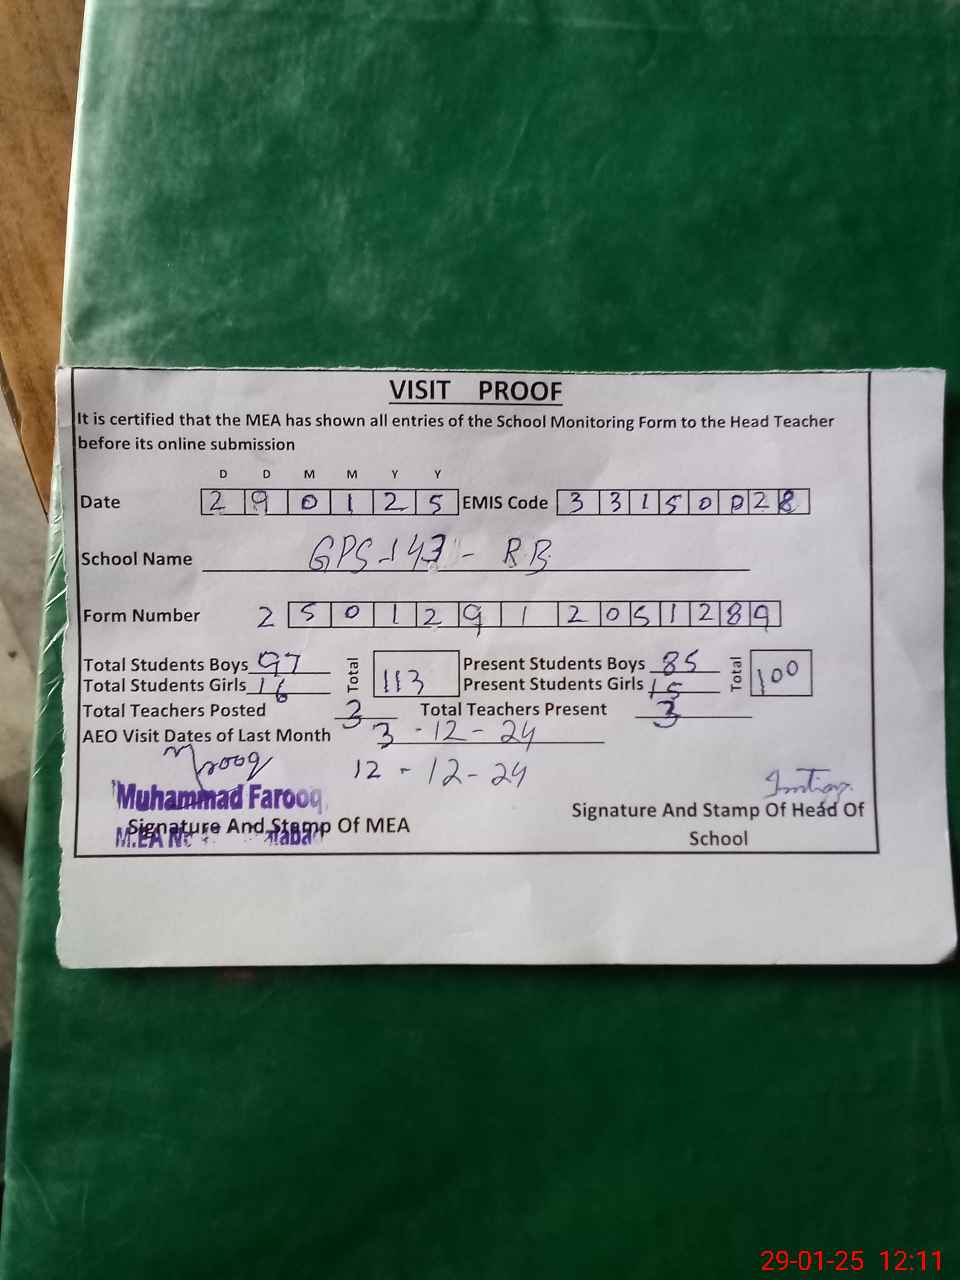 VISIT PROOF
It is certified that the MEA has shown all entries of the School Monitoring Form to the Head Teacher
before its online submission
D D M M Y Y
Date 2 9 0 1 2 5 EMIS Code 3 3 1 5 0 0 2 8
School Name GPS-143-RB
Form Number 2 5 0 1 2 9 1 2 0 5 1 2 8 9
Total Students Boys 97 Total 113 Present Students Boys 85 Total 100
Total Students Girls 16 Present Students Girls 15
Total Teachers Posted 3 Total Teachers Present 3
AEO Visit Dates of Last Month 3-12-24
12-12-24
Farooq
Muhammad Farooq
Imtiaz
Signature And Stamp Of MEA
Signature And Stamp Of Head Of
School
M.EA
29-01-25 12:11